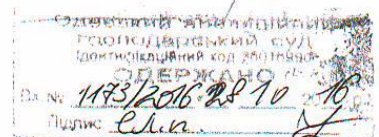 Одеський апеляційний
господарський суд
Ідентифікаційний код
ОДЕРЖАНО
Вх. № 1173/2016 28 10 16
Підпис